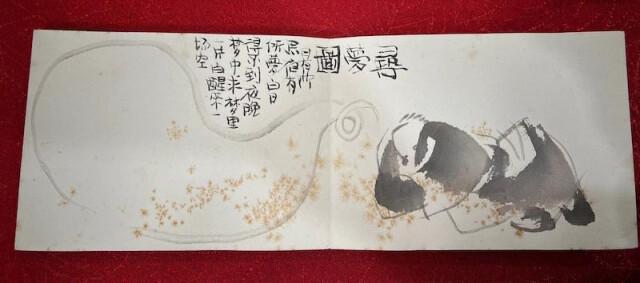 尋夢圖
日有所
思夜有
所夢白日
得不到夜晚
夢中求夢里
一片白醒來一
場空